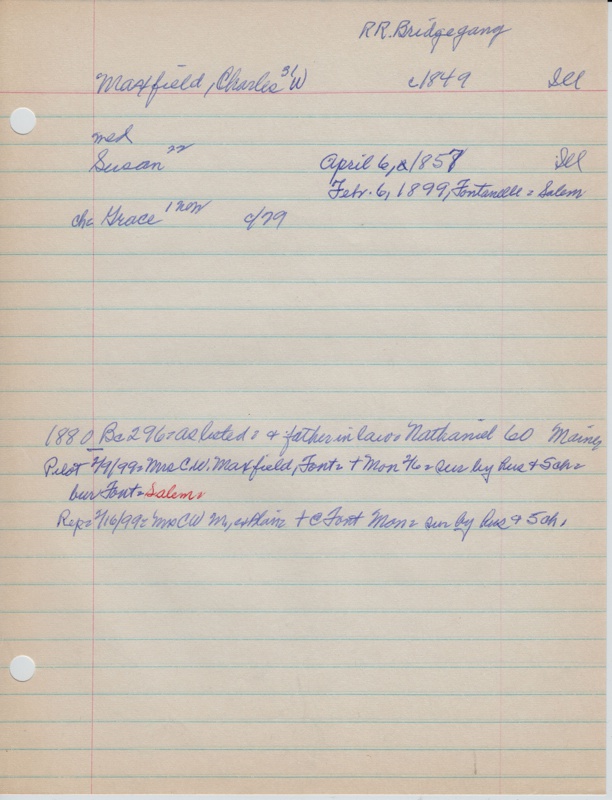 RR. Bridge gang
Maxfield, Charles 31 W c1849 Ill
med
Susan 22 April 6, c1857 Ill
Febr. 6, 1899, Fontanelle = Salem
ch= Grace 1 c/79
1880 Bc 296 = as listed = & father in law = Nathaniel 60 Maine
Pilot 2/9/99 = Mrs C.W. Maxfield, Font = + Mon 2/6 = sur by hus & 5 ch =
bur Font = Salem =
Rep = 2/16/99 = Mrs CW M, + @ Font Mon = sur by hus & 5 ch.